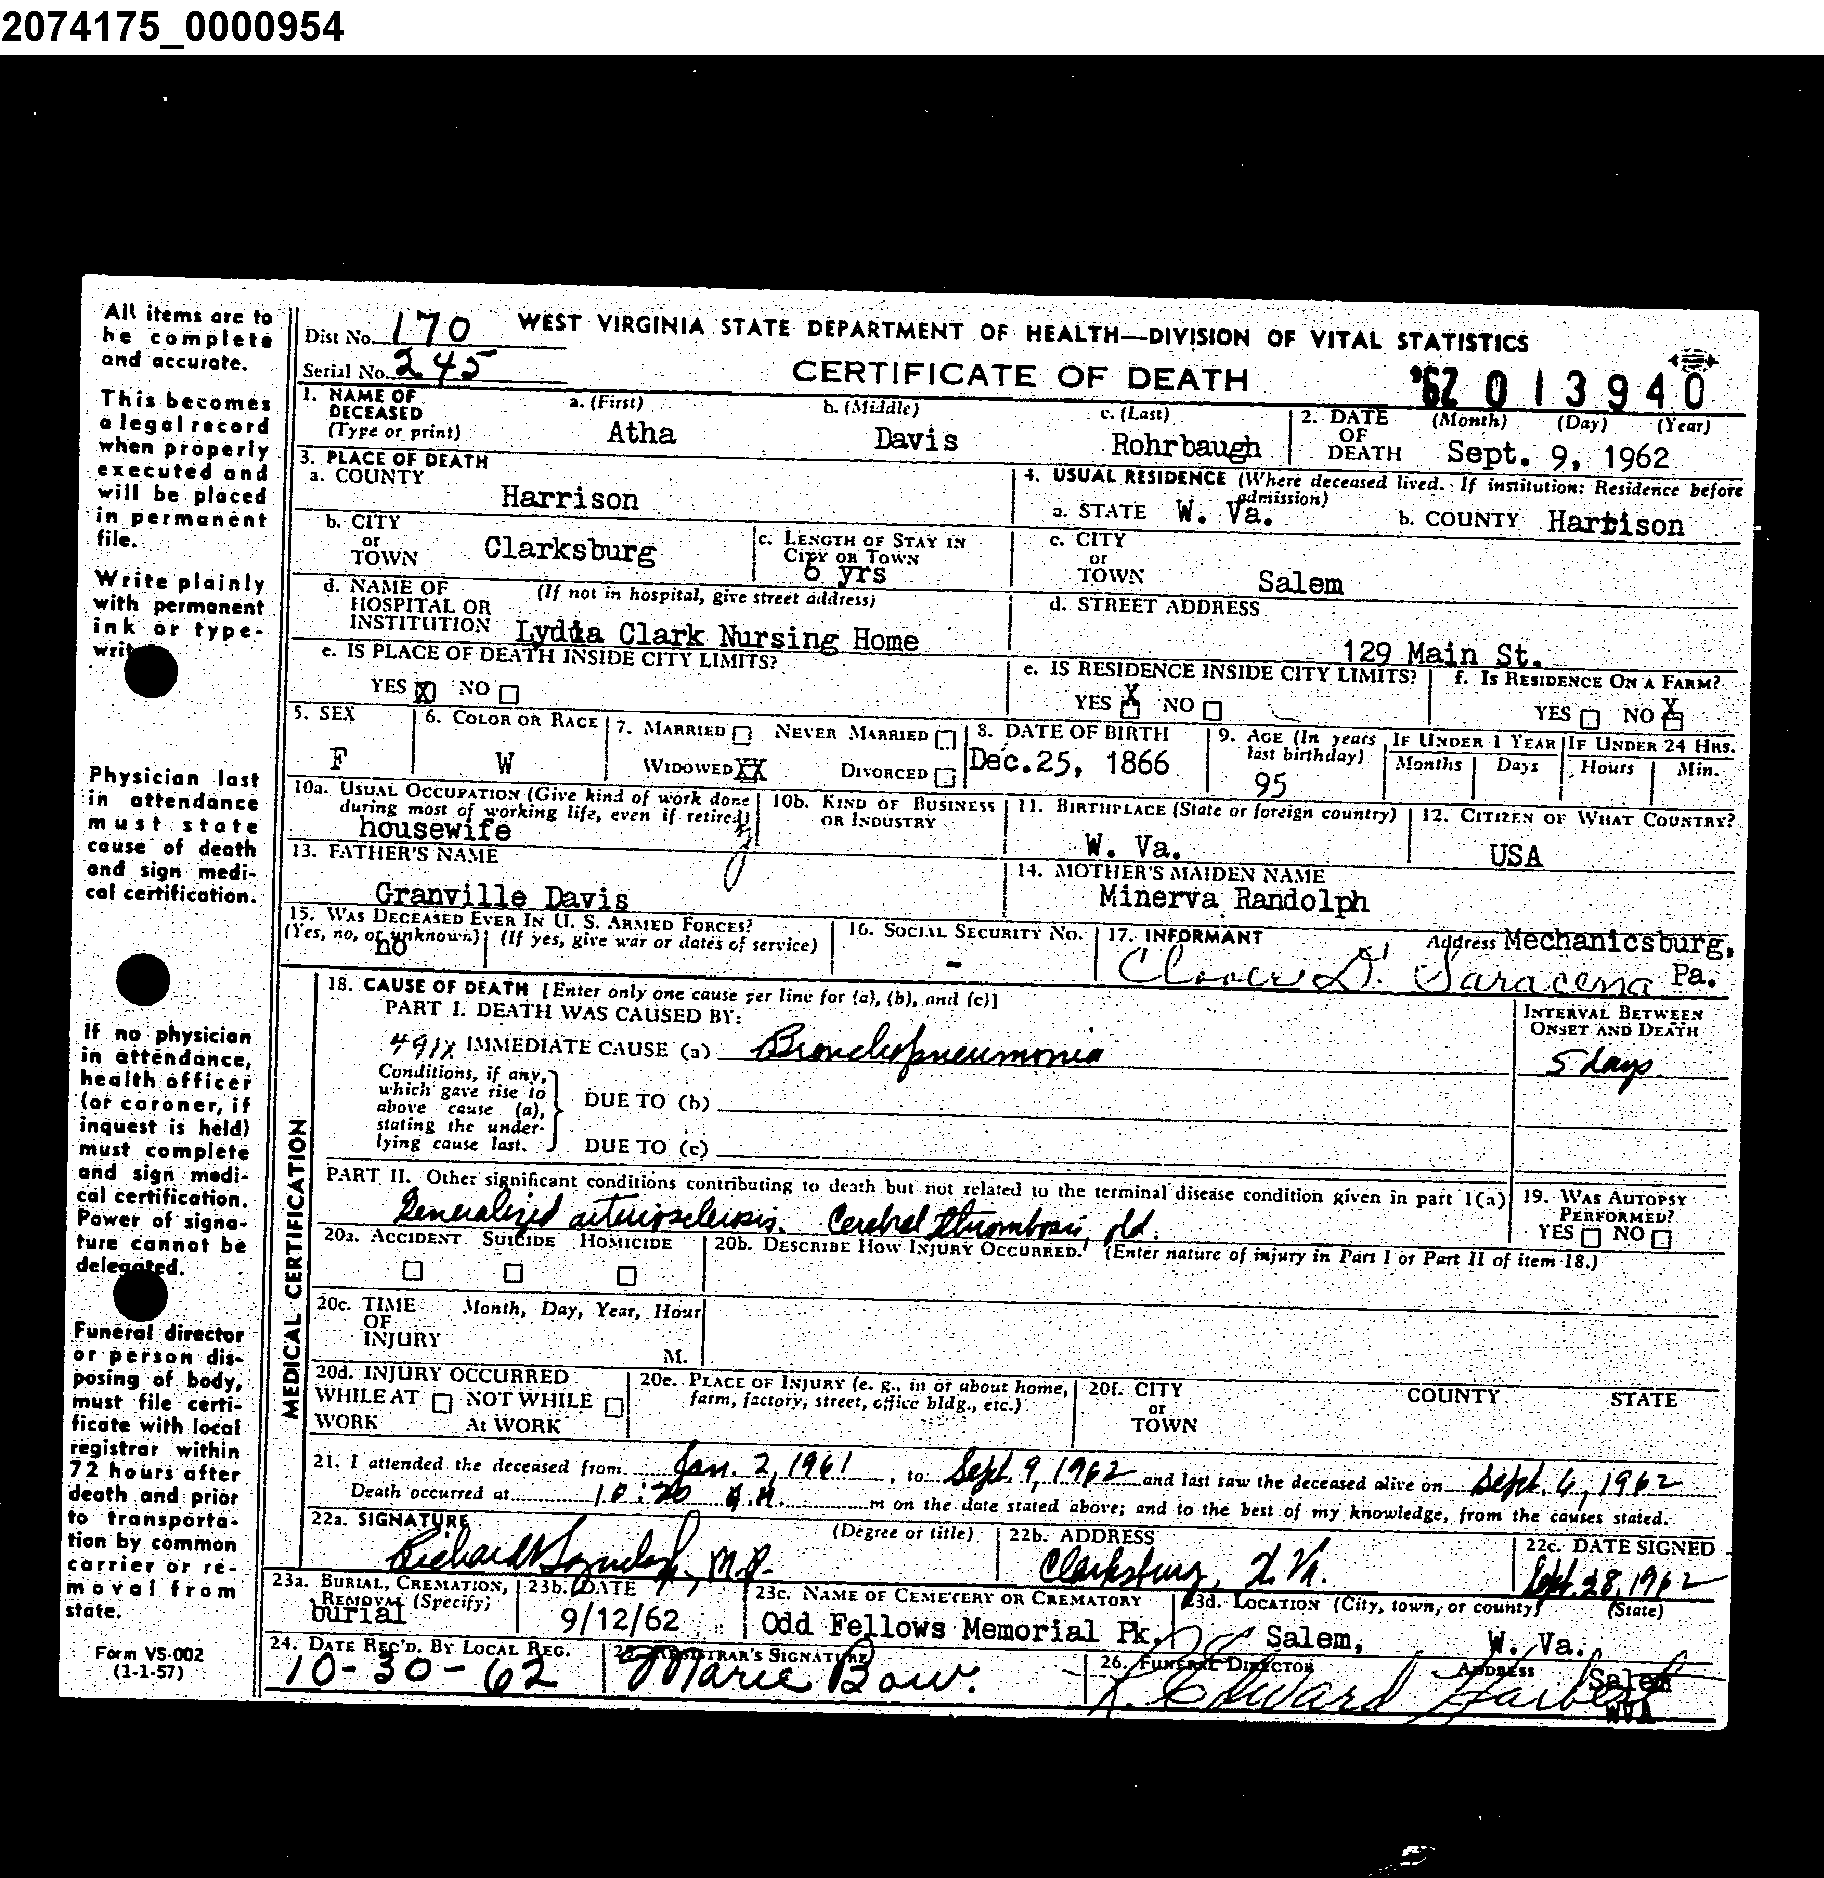 2074175_0000954
All items are to
be complete
and accurate.
This becomes
a legal record
when properly
executed and
will be placed
in permanent
file.
Write plainly
with permanent
ink or type-
Physician last
in attendance
must state
cause of death
and sign medi-
cal certification.
If no physician
in attendance,
health officer
(or coroner, if
inquest is held)
must complete
and sign medi-
cal certification.
Power of signa-
ture cannot be
delegated.
Funeral director
or person dis-
posing of body,
must file certi-
ficate with local
registrar within
72 hours after
death and prior
to transporta-
tion by common
carrier or re-
moval from
state.
Form VS-002
(1-1-57)
Dist No. 170
WEST VIRGINIA STATE DEPARTMENT OF HEALTH—DIVISION OF VITAL STATISTICS
Serial No. 245
CERTIFICATE OF DEATH
'62 013940
1. NAME OF DECEASED (Type or print) a. (First) b. (Middle) c. (Last)
Atha Davis Rohrbaugh
2. DATE OF DEATH (Month) (Day) (Year)
Sept. 9, 1962
3. PLACE OF DEATH
a. COUNTY
Harrison
4. USUAL RESIDENCE (Where deceased lived. If institution: Residence before admission)
a. STATE W. Va. b. COUNTY Harrison
b. CITY or TOWN Clarksburg
c. LENGTH OF STAY IN CITY OR TOWN
6 yrs
c. CITY or TOWN
Salem
d. NAME OF HOSPITAL OR INSTITUTION (If not in hospital, give street address)
Lydia Clark Nursing Home
d. STREET ADDRESS
129 Main St.
e. IS PLACE OF DEATH INSIDE CITY LIMITS?
YES X NO
e. IS RESIDENCE INSIDE CITY LIMITS?
YES X NO
f. IS RESIDENCE ON A FARM?
YES NO X
5. SEX
F
6. COLOR OR RACE
W
7. MARRIED NEVER MARRIED
WIDOWED XX DIVORCED
8. DATE OF BIRTH
Dec.25, 1866
9. AGE (In years last birthday)
95
IF UNDER 1 YEAR IF UNDER 24 HRS.
Months Days Hours Min.
10a. USUAL OCCUPATION (Give kind of work done during most of working life, even if retired)
housewife
10b. KIND OF BUSINESS OR INDUSTRY
11. BIRTHPLACE (State or foreign country)
W. Va.
12. CITIZEN OF WHAT COUNTRY?
USA
13. FATHER'S NAME
Granville Davis
14. MOTHER'S MAIDEN NAME
Minerva Randolph
15. WAS DECEASED EVER IN U. S. ARMED FORCES?
(Yes, no, or unknown) (If yes, give war or dates of service)
no
16. SOCIAL SECURITY NO.
-
17. INFORMANT Address Mechanicsburg,
D. Saracena Pa.
MEDICAL CERTIFICATION
18. CAUSE OF DEATH [Enter only one cause per line for (a), (b), and (c)]
PART I. DEATH WAS CAUSED BY:
INTERVAL BETWEEN ONSET AND DEATH
491X IMMEDIATE CAUSE (a) Bronchopneumonia 5 days
Conditions, if any, which gave rise to above cause (a), stating the under-lying cause last.
DUE TO (b)
DUE TO (c)
PART II. Other significant conditions contributing to death but not related to the terminal disease condition given in part I(a)
Generalized arteriosclerosis. Cerebral thrombosis, old.
19. WAS AUTOPSY PERFORMED?
YES NO
20a. ACCIDENT SUICIDE HOMICIDE
20b. DESCRIBE HOW INJURY OCCURRED. (Enter nature of injury in Part I or Part II of item 18.)
20c. TIME OF INJURY Month, Day, Year, Hour
M.
20d. INJURY OCCURRED
WHILE AT WORK NOT WHILE AT WORK
20e. PLACE OF INJURY (e. g., in or about home, farm, factory, street, office bldg., etc.)
20f. CITY or TOWN COUNTY STATE
21. I attended the deceased from Jan. 2, 1961, to Sept. 9, 1962 and last saw the deceased alive on Sept. 6, 1962
Death occurred at 10:20 A.M. m on the date stated above; and to the best of my knowledge, from the causes stated.
22a. SIGNATURE (Degree or title)
Richard M.D.
22b. ADDRESS
Clarksburg, W. Va.
22c. DATE SIGNED
Sept. 28, 1962
23a. BURIAL, CREMATION, REMOVAL (Specify)
burial
23b. DATE
9/12/62
23c. NAME OF CEMETERY OR CREMATORY
Odd Fellows Memorial Pk.
23d. LOCATION (City, town, or county) (State)
Salem, W. Va.
24. DATE REC'D. BY LOCAL REG.
10-30-62
REGISTRAR'S SIGNATURE
Marie Bow.
26. FUNERAL DIRECTOR ADDRESS
Edward Harbert Salem
WVA